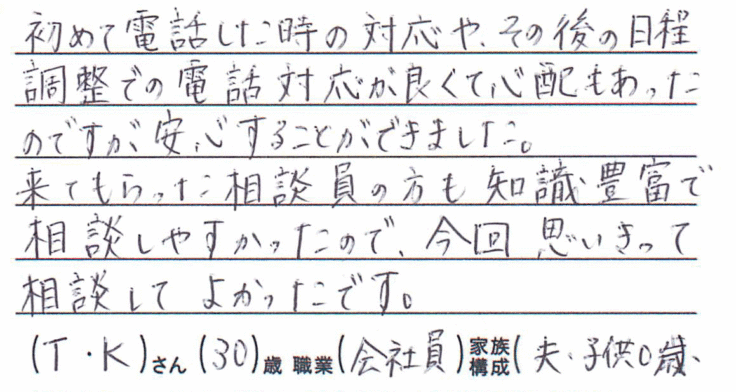 初めて電話した時の対応や、その後の日程
調整での電話対応が良くて心配もあった
のですが安心することができました。
来てもらった相談員の方も知識豊富で
相談しやすかったので、今回思いきって
相談してよかったです。
(T・K)さん(30)歳 職業(会社員)家族構成(夫・子供0歳、